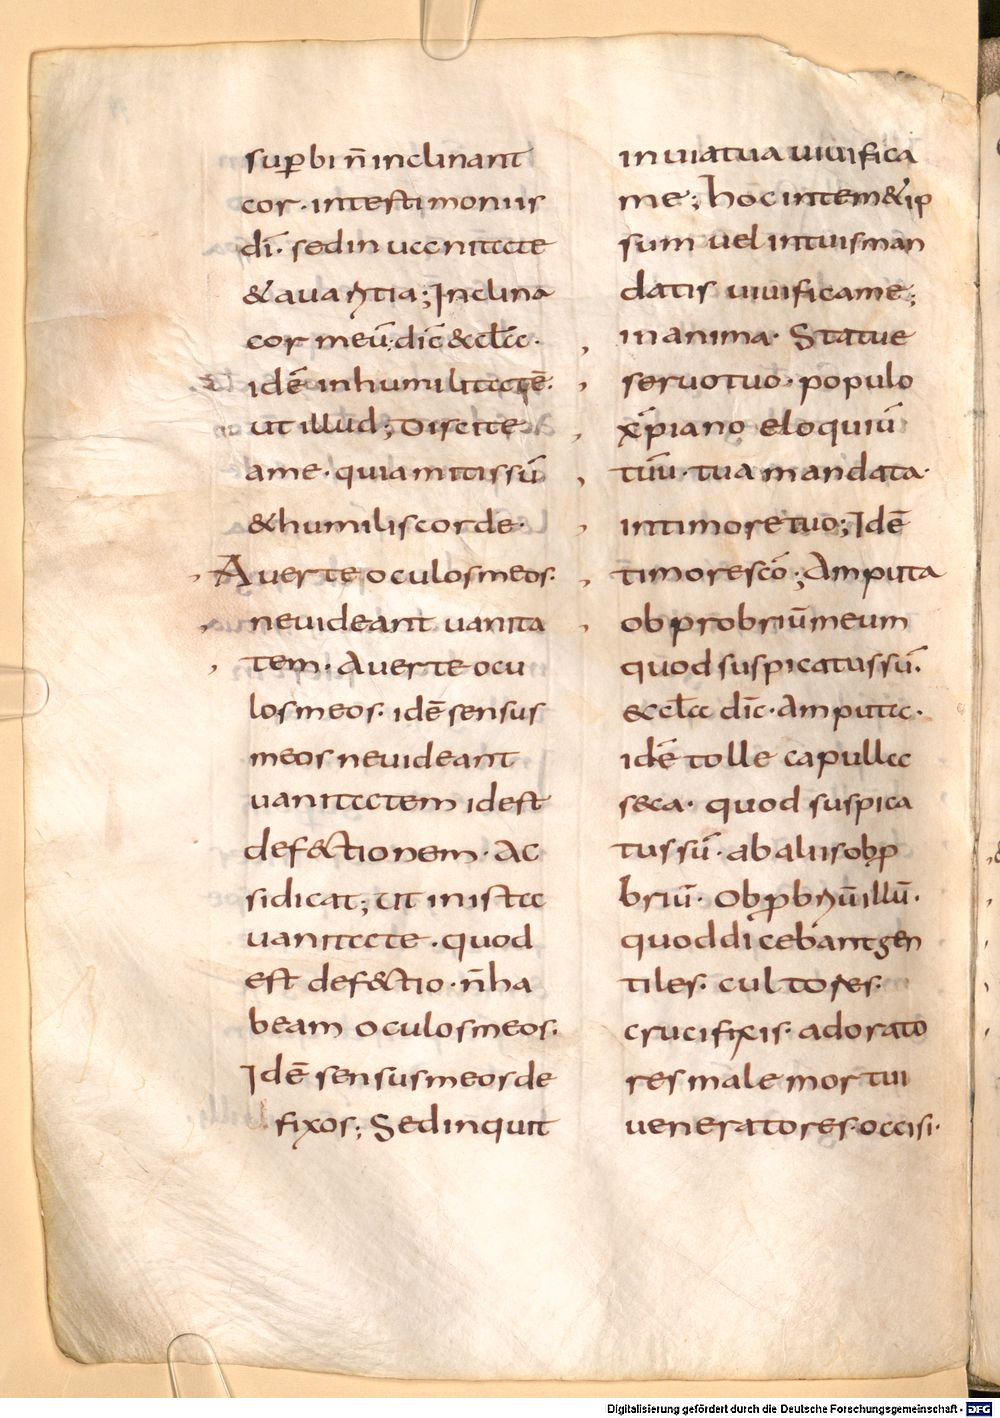 sup̱bi n̄ inclinant
cor· in testimoniis
dī· sed in uanitate
& auaritia; Inclina
cor meū· dic̄ & cl̄a·
idē in humilitatē·
ut illud; Discite
a me· quia mitis sū
& humilis corde·
Auerte oculos meos·
ne uideant uanita
tem· Auerte ocu
los meos· idē sensus
meos ne uideant
uanitatem id est
def&ctionem· Ac
si dicat; ut in ista
uanitate· quod
est def&ctio· n̄ ha
beam oculos meos·
Idē sensus meos de
fixos; Sed inquit
in uia tua uiuifica
me; hoc in tem&ip
sum uel in tuis man
datis uiuifica me;
in anima· Statue
seruo tuo· populo
xp̄iano eloquiū
tuū· tua mandata·
in timore tuo; Idē
timore scō; Amputa
obprobriū meum
quod suspicatus sū·
& cl̄a dic̄· Amputa·
idē tolle capulla
s&a· quod suspica
tus sū· ab aliis obp̱
briū· Obp̱briū illū·
quod dicebant gen
tiles· cultores·
crucifixis· adorato
res male mortui
ueneratores occisi·
Digitalisierung gefördert durch die Deutsche Forschungsgemeinschaft - DFG